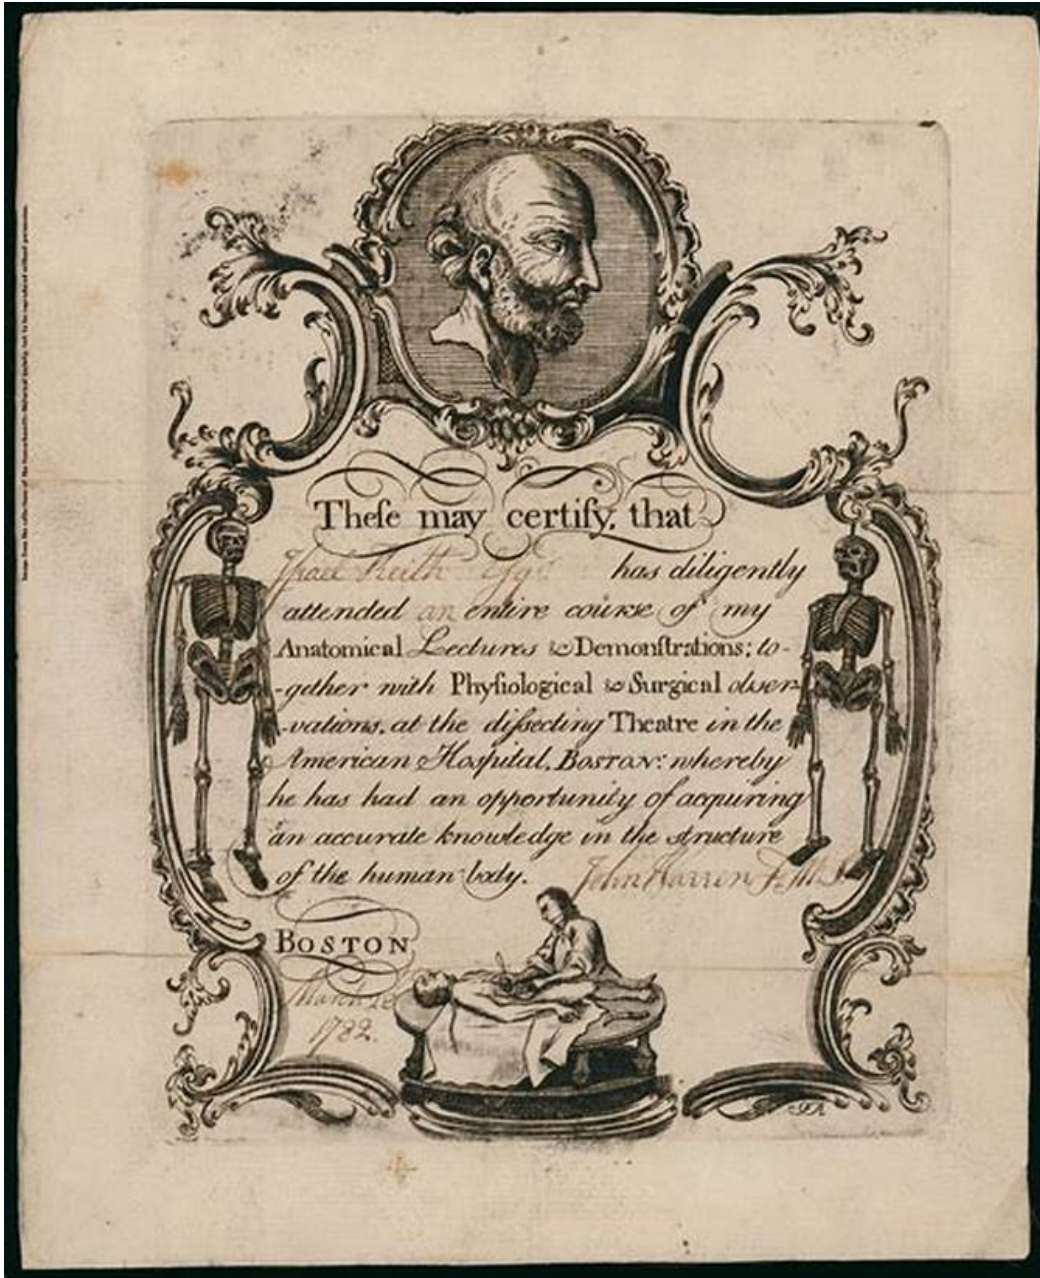 Theſe may certify, that
Iſrael Keith Eſqr has diligently
attended an entire courſe of my
Anatomical Lectures & Demonſtrations; to-
-gether with Phyſiological & Surgical obser-
-vations, at the diſsecting Theatre in the
American Hoſpital, BOSTON: whereby
he has had an opportunity of acquiring
an accurate knowledge in the structure
of the human body. John Warren
BOSTON
March
1782.